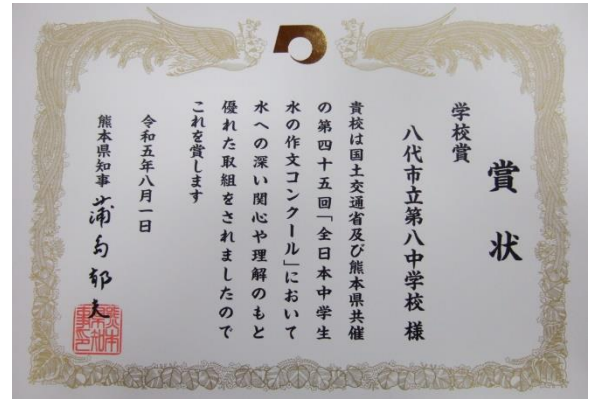 賞状
学校賞
八代市立第八中学校 様
貴校は国土交通省及び熊本県共催
の第四十五回「全日本中学生
水の作文コンクール」において
水への深い関心や理解のもと
優れた取組をされましたので
これを賞します
令和五年八月一日
熊本県知事 蒲島郁夫
熊本県知事印